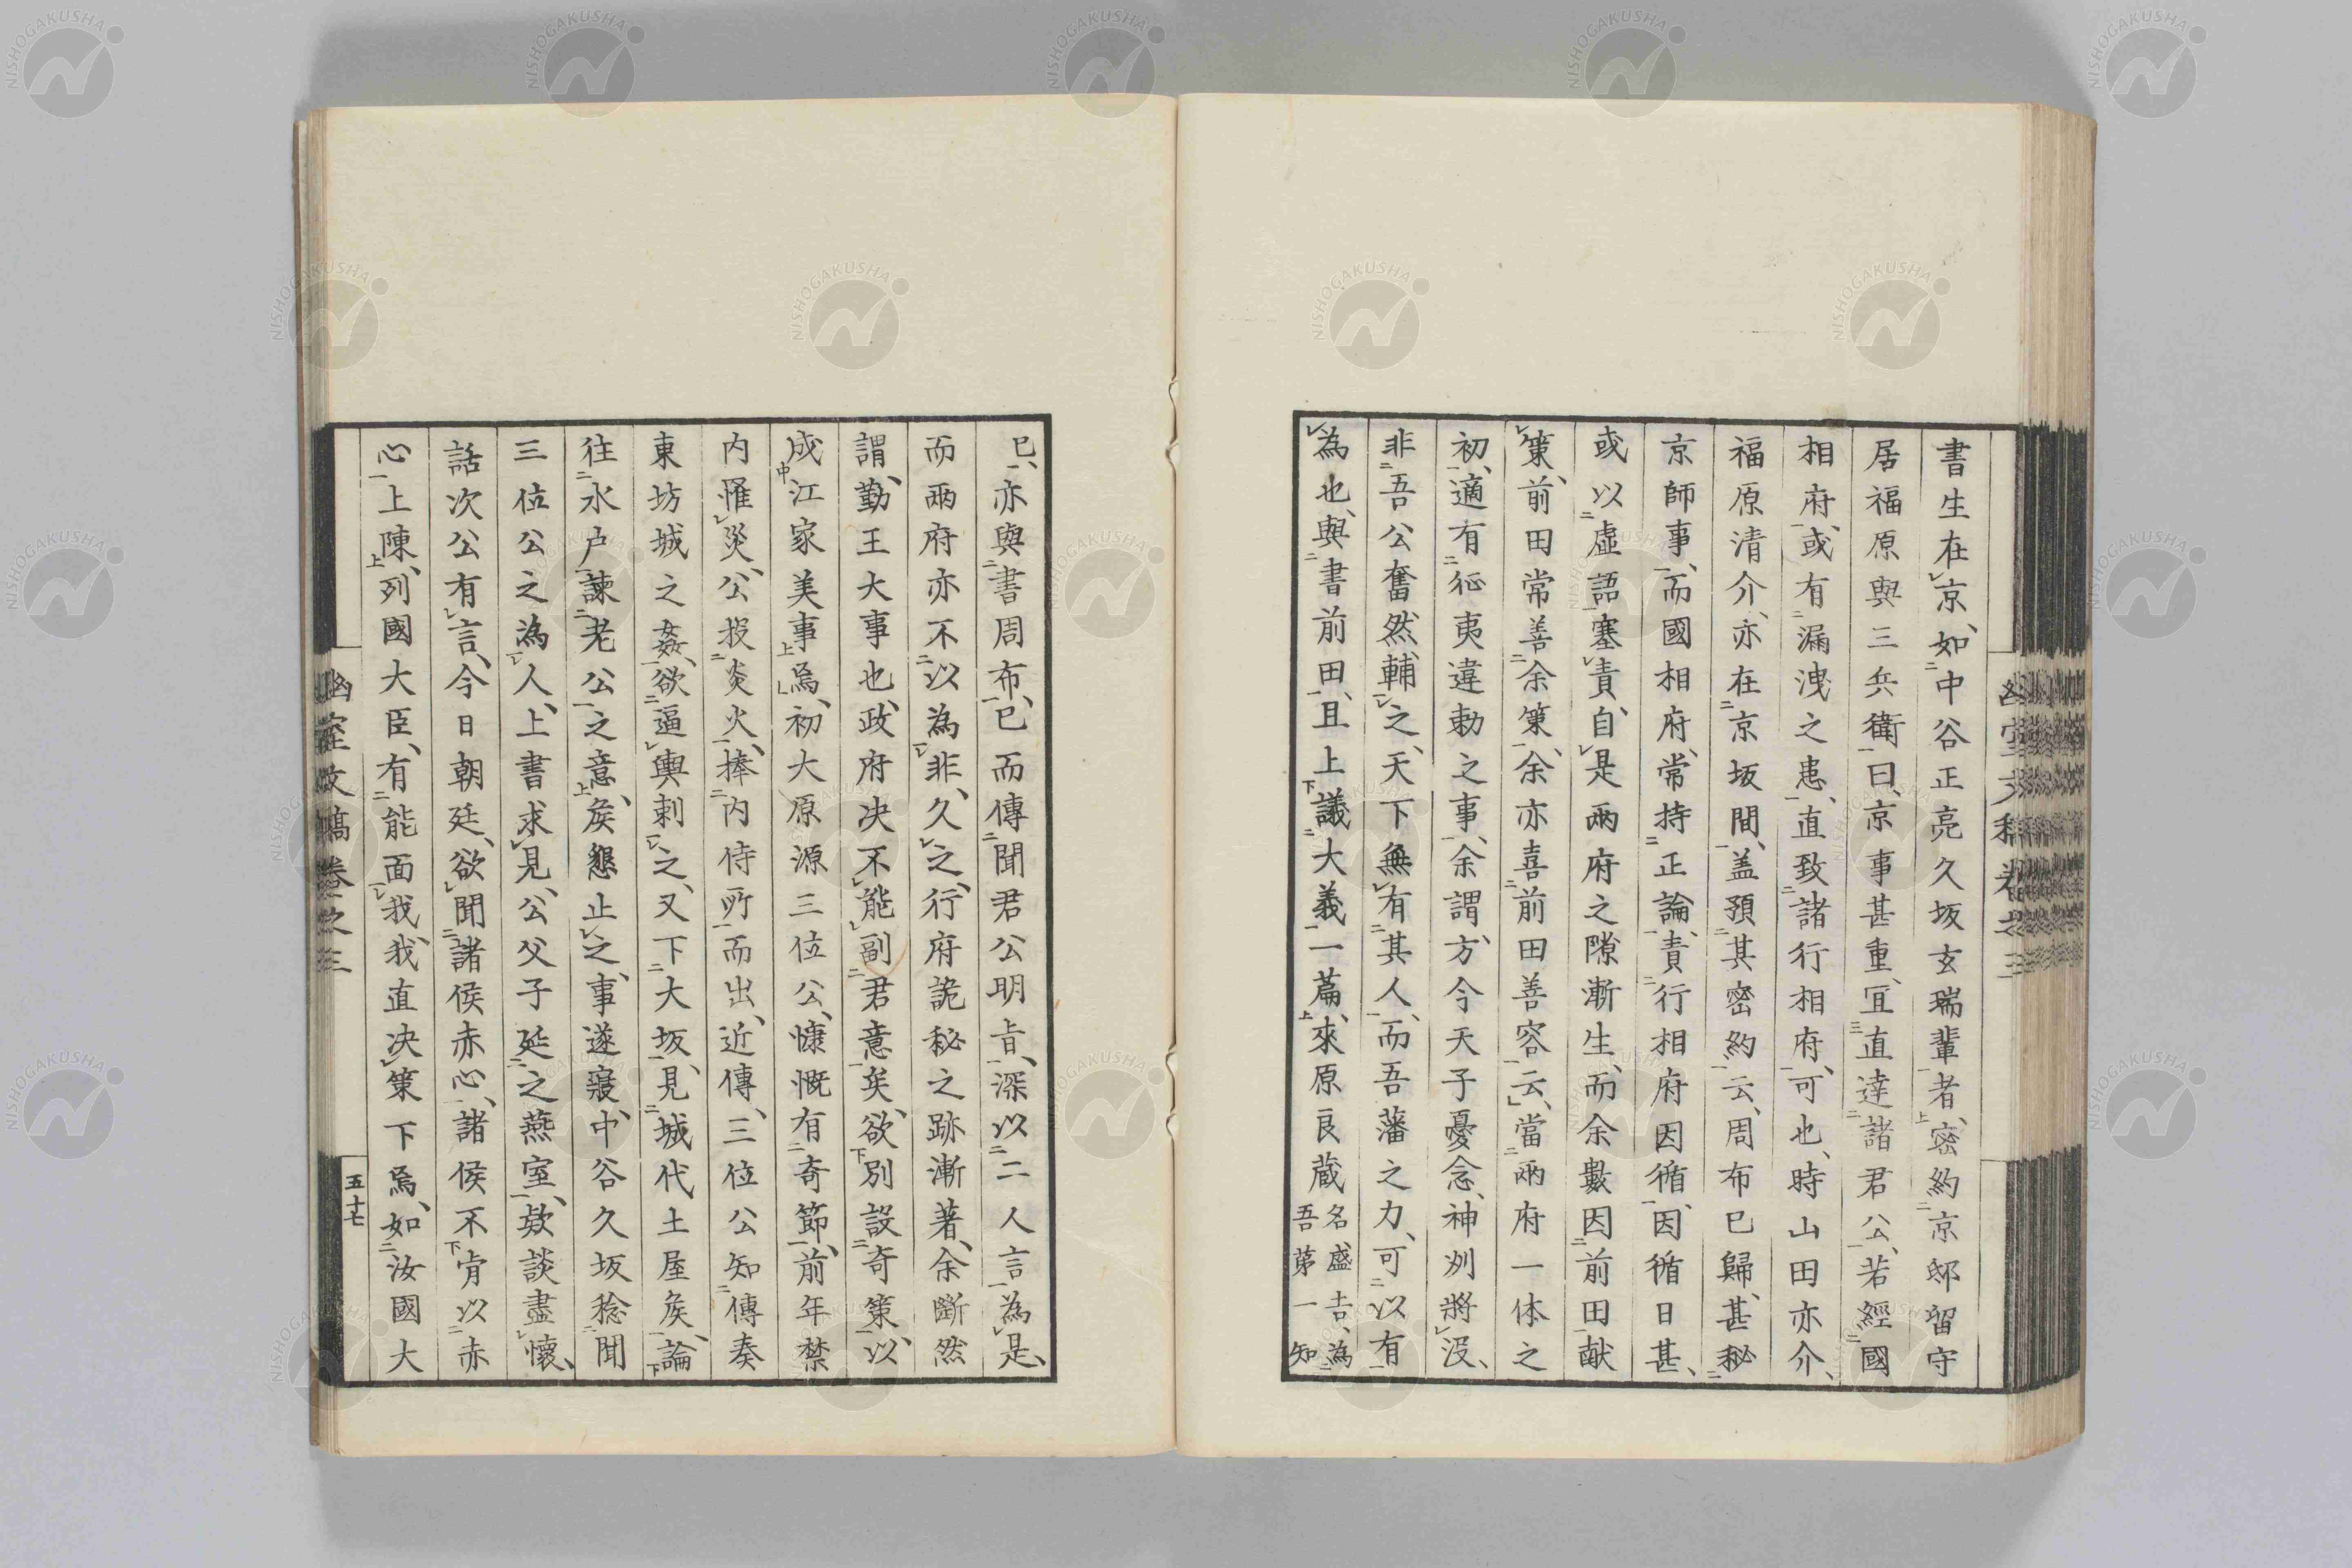 書生在京、如中谷正亮久坂玄瑞輩者、密約京邸留守
居福原與三兵衛曰、京事甚重、宜直達諸君公、若經國
相府、或有漏洩之患、直致諸行相府、可也、時山田亦介、
福原清介、亦在京坂間、盖預其密約云、周布已歸、甚秘
京師事、而國相府、常持正論、責行相府因循、因循日甚、
或以虛語塞責、自是兩府之隙漸生、而余數因前田献
策、前田常善余策、余亦喜前田善容云、當兩府一体之
初、適有征夷違勅之事、余謂、方今天子憂念、神州將沒、
非吾公奮然、輔之、天下無有其人、而吾藩之力、可以有
為也、與書前田、且上議大義一篇、來原良蔵名盛吉、為吾第一知
已、亦與書周布、已而傳聞君公明旨、深以二人言為是、
而兩府亦不以為非、久之、行府詭秘之跡漸著、余斷然
謂、勤王大事也、政府决不能副君意矣、欲別設奇策、以
成江家美事焉、初大原源三位公、慷慨有奇節、前年禁
内罹災、公投炎火、捧内侍所而出、近傳、三位公知傳奏
東坊城之姦、欲逼輿刺之、又下大坂、見城代土屋矦、論
往水户諫老公之意、矦懇止之、事遂寢、中谷久坂稔聞
三位公之為人、上書求見、公父子延之燕室、欵談盡懷、
話次公有言、今日朝廷、欲聞諸侯赤心、諸侯不肯以赤
心上陳、列國大臣、有能面我、我直决策下焉、如汝國大
幽室文稿卷之三
五十七